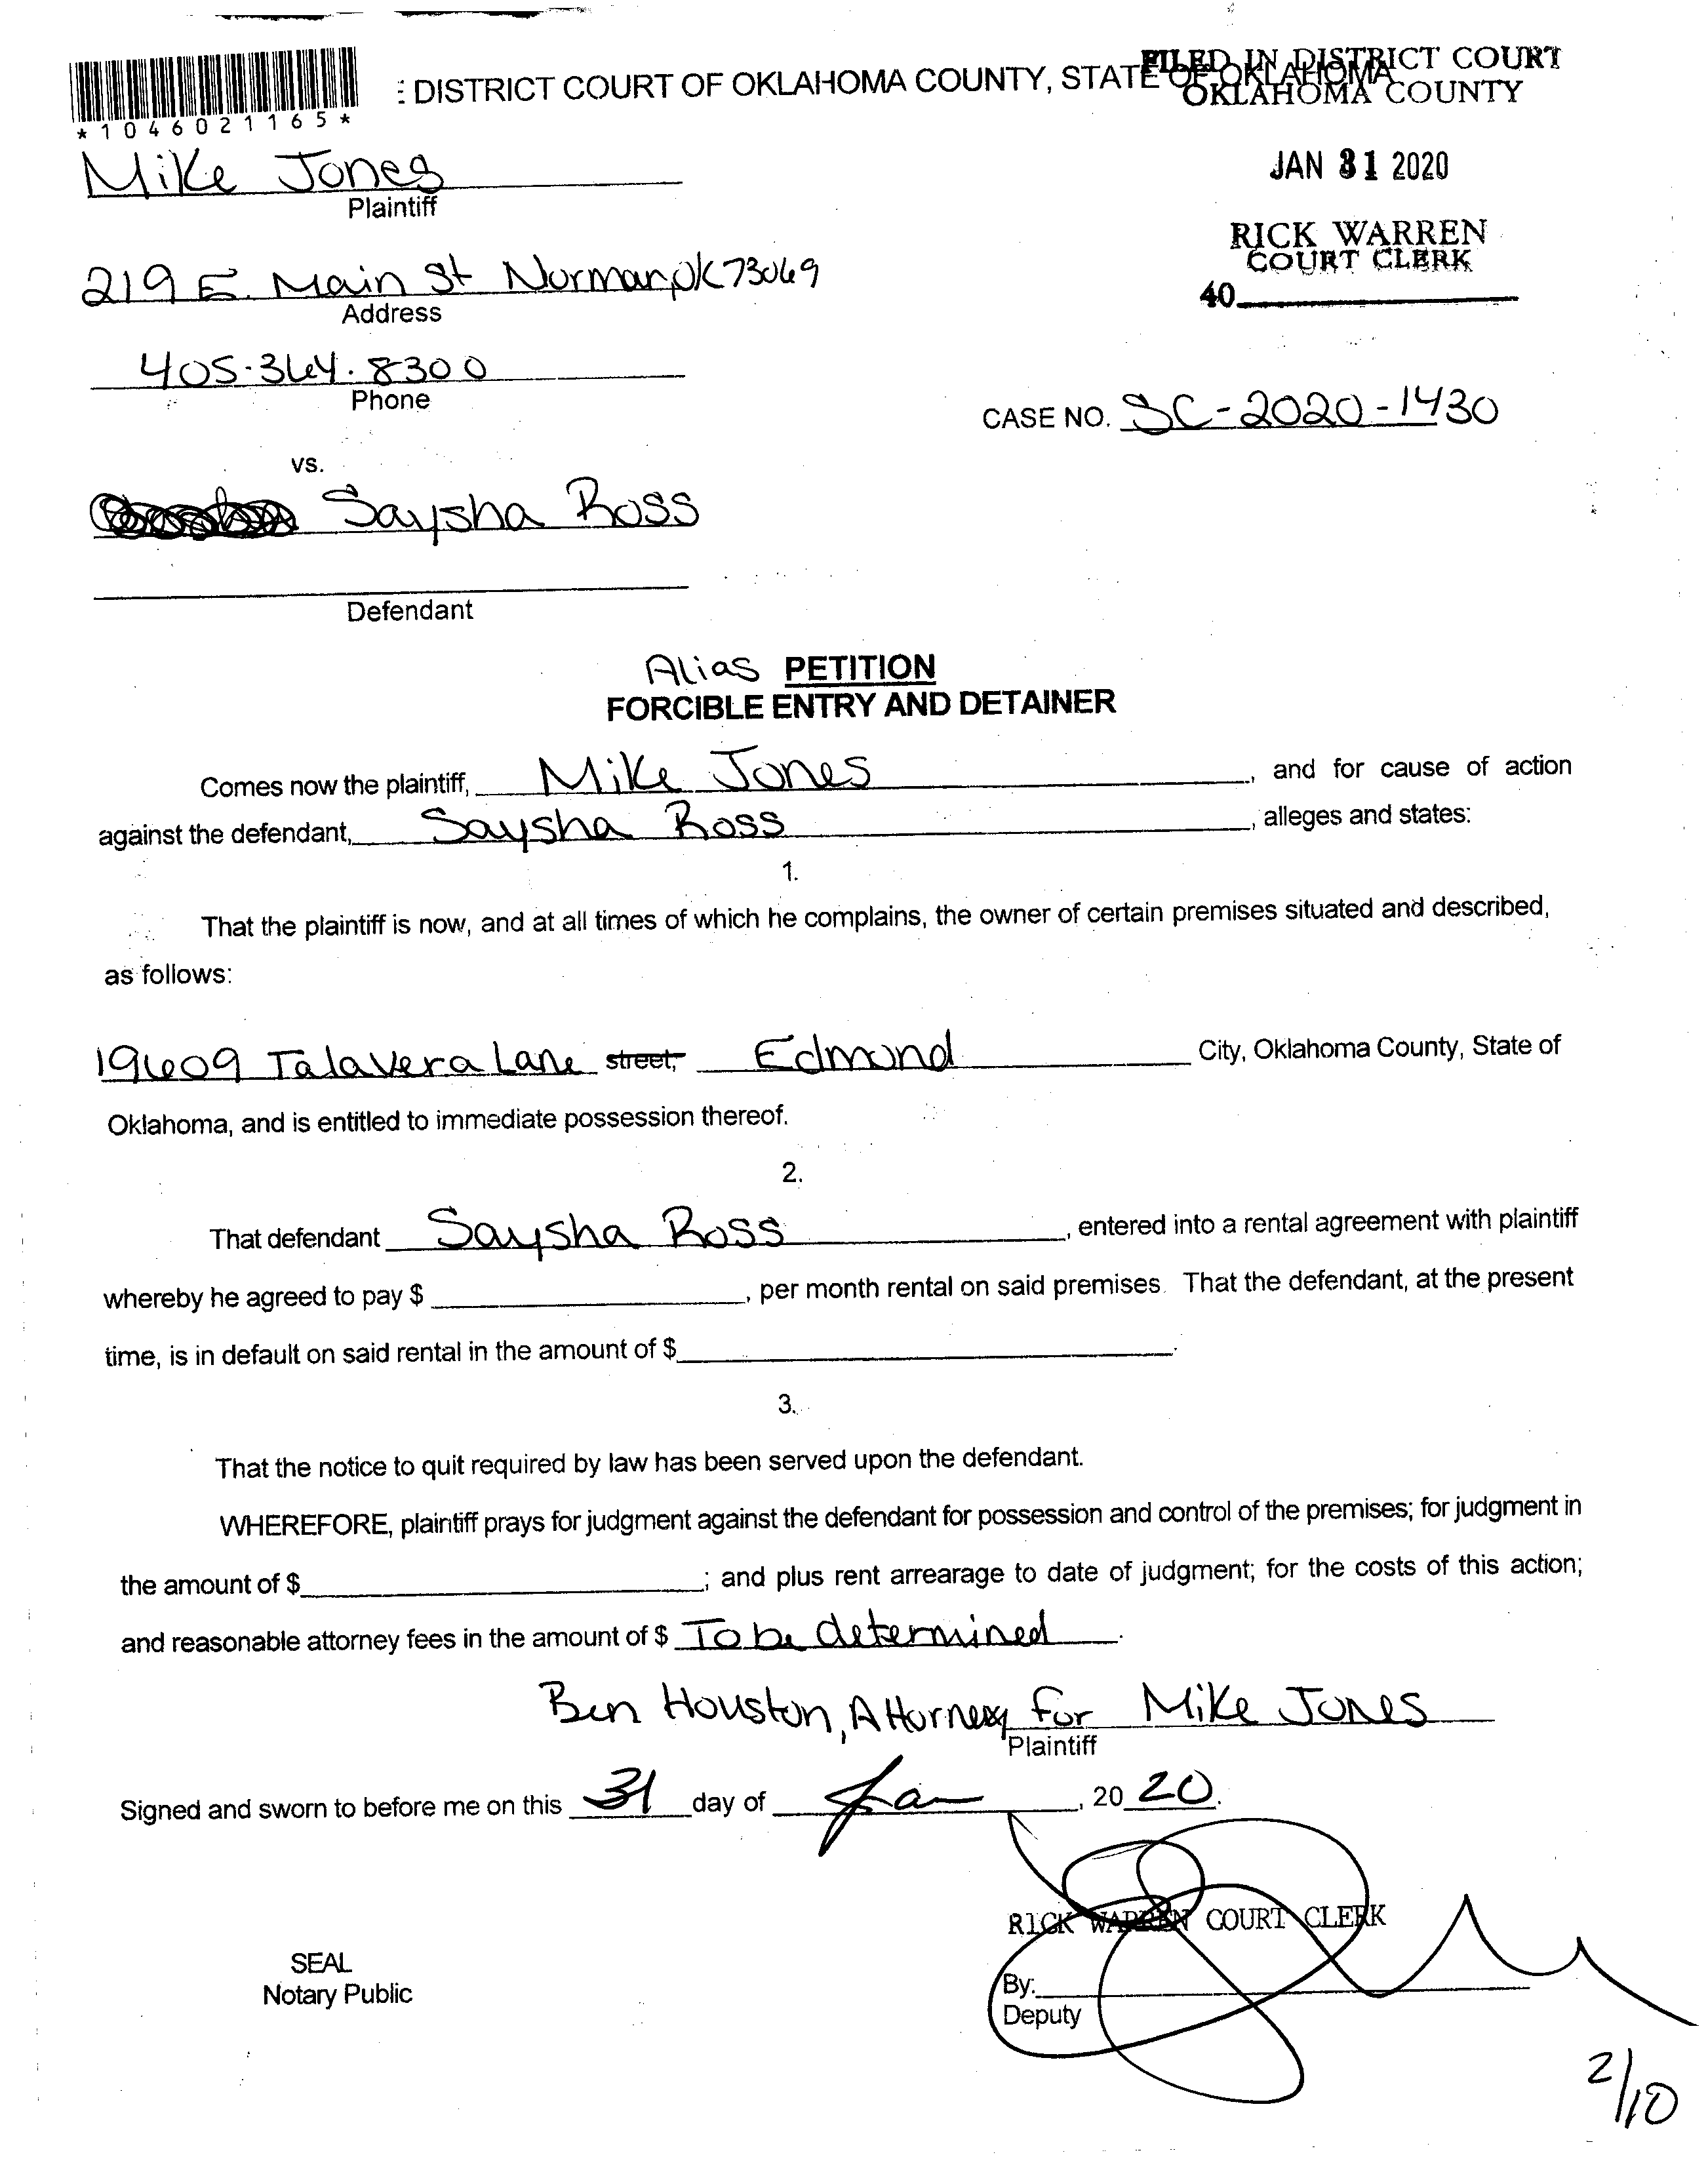 FILED IN DISTRICT COURT
: DISTRICT COURT OF OKLAHOMA COUNTY, STATE OF OKLAHOMA
OKLAHOMA COUNTY
*1046021165*
Mike Jones
Plaintiff
JAN 31 2020
RICK WARREN
COURT CLERK
219 E. Main St Norman, OK 73069
Address
40
405-364-8300
Phone
CASE NO. SC-2020-1430
vs.
Saysha Ross
Defendant
Alias PETITION
FORCIBLE ENTRY AND DETAINER
Comes now the plaintiff, Mike Jones, and for cause of action
against the defendant, Saysha Ross, alleges and states:
1.
That the plaintiff is now, and at all times of which he complains, the owner of certain premises situated and described,
as follows:
19609 Talavera Lane street, Edmond City, Oklahoma County, State of
Oklahoma, and is entitled to immediate possession thereof.
2.
That defendant Saysha Ross, entered into a rental agreement with plaintiff
whereby he agreed to pay $, per month rental on said premises. That the defendant, at the present
time, is in default on said rental in the amount of $.
3.
That the notice to quit required by law has been served upon the defendant.
WHEREFORE, plaintiff prays for judgment against the defendant for possession and control of the premises; for judgment in
the amount of $; and plus rent arrearage to date of judgment; for the costs of this action;
and reasonable attorney fees in the amount of $ To be determined.
Ben Houston, Attorney for Mike Jones
Plaintiff
Signed and sworn to before me on this 31 day of Jan, 20 20.
RICK WARREN COURT CLERK
SEAL
Notary Public
By:
Deputy
2/10